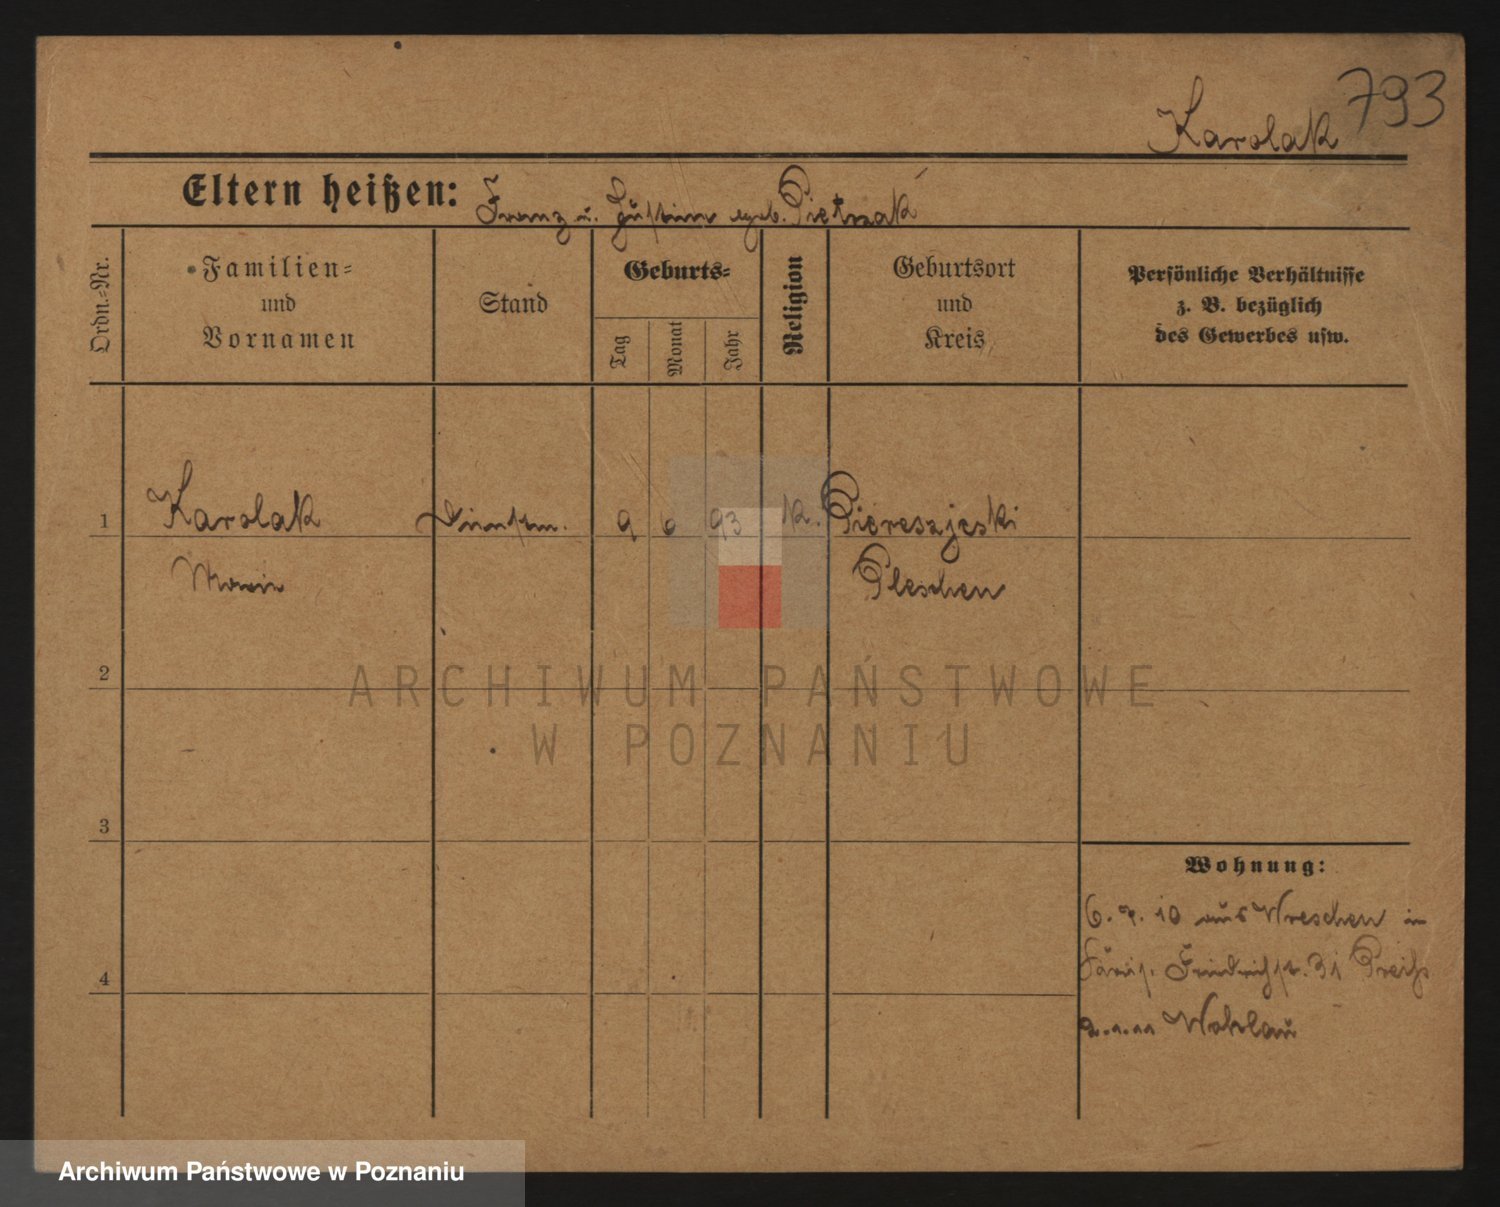 793
Karolak
Eltern heißen: Franz u. Justine geb. Pietrzak
Ordn.-Nr.
Familien-
und
Vornamen
Stand
Geburts-
Tag
Monat
Jahr
Religion
Geburtsort
und
Kreis
Persönliche Verhältnisse
z. B. bezüglich
des Gewerbes usw.
1 Karolak Dienstm. 9 6 93 K. Piereszjeski
Marie Pleschen
2
ARCHIWUM PAŃSTWOWE
W POZNANIU
3
Wohnung:
6. 7. 10 aus Wreschen in
Friedrichstr. 31
4
Wohlau
Archiwum Państwowe w Poznaniu